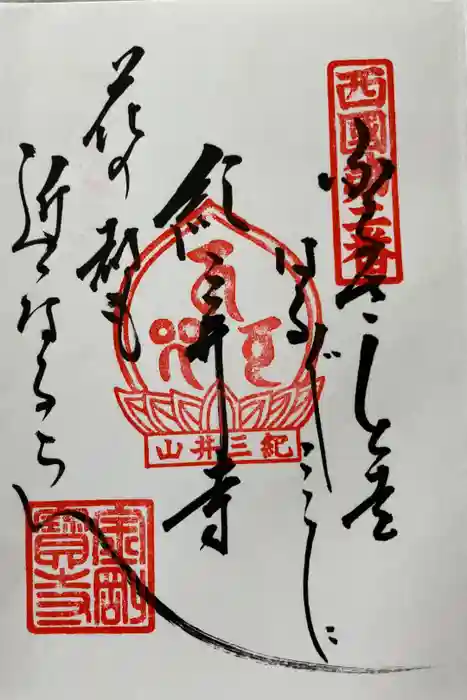 西國第二番
ふるさとを
はる〴〵こゝに
紀三井寺
花の都も
近くなるらん
山井三紀
金剛
寶寺